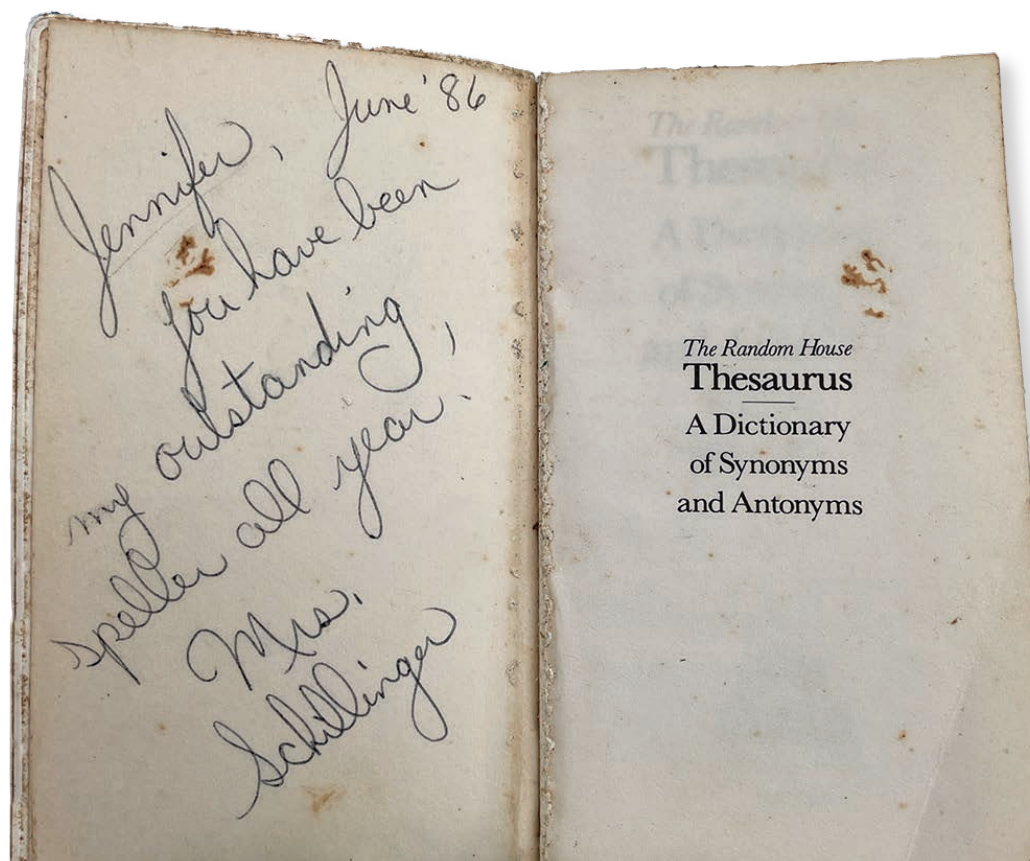 Jennifer, June '86
You have been
my outstanding,
speller all year.
Mrs.
Schillinger
The Random House
Thesaurus
A Dictionary
of Synonyms
and Antonyms